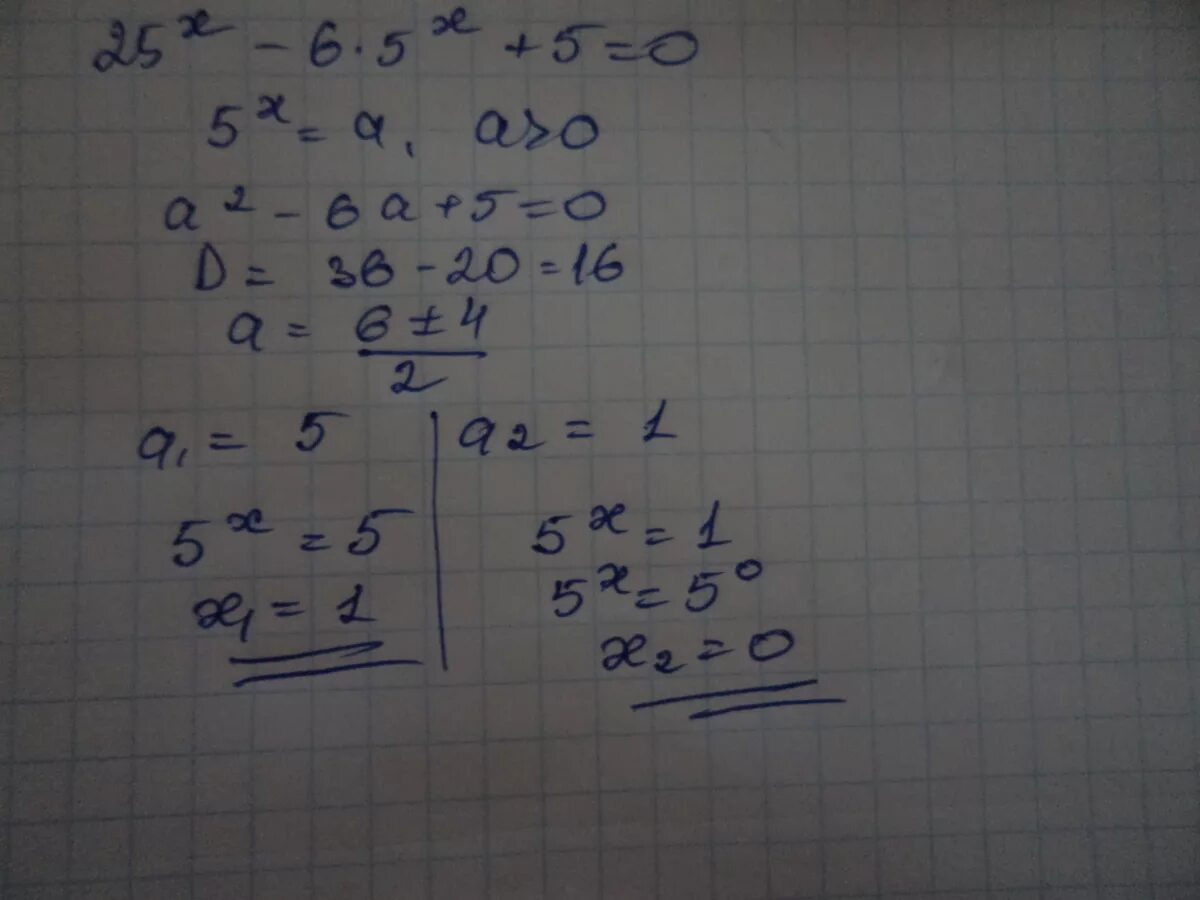 25^x - 6·5^x + 5 = 0
5^x = a, a>0
a² - 6a + 5 = 0
D = 36 - 20 = 16
a = (6 ± 4)/2
a₁ = 5
5^x = 5
x₁ = 1
a₂ = 1
5^x = 1
5^x = 5^0
x₂ = 0